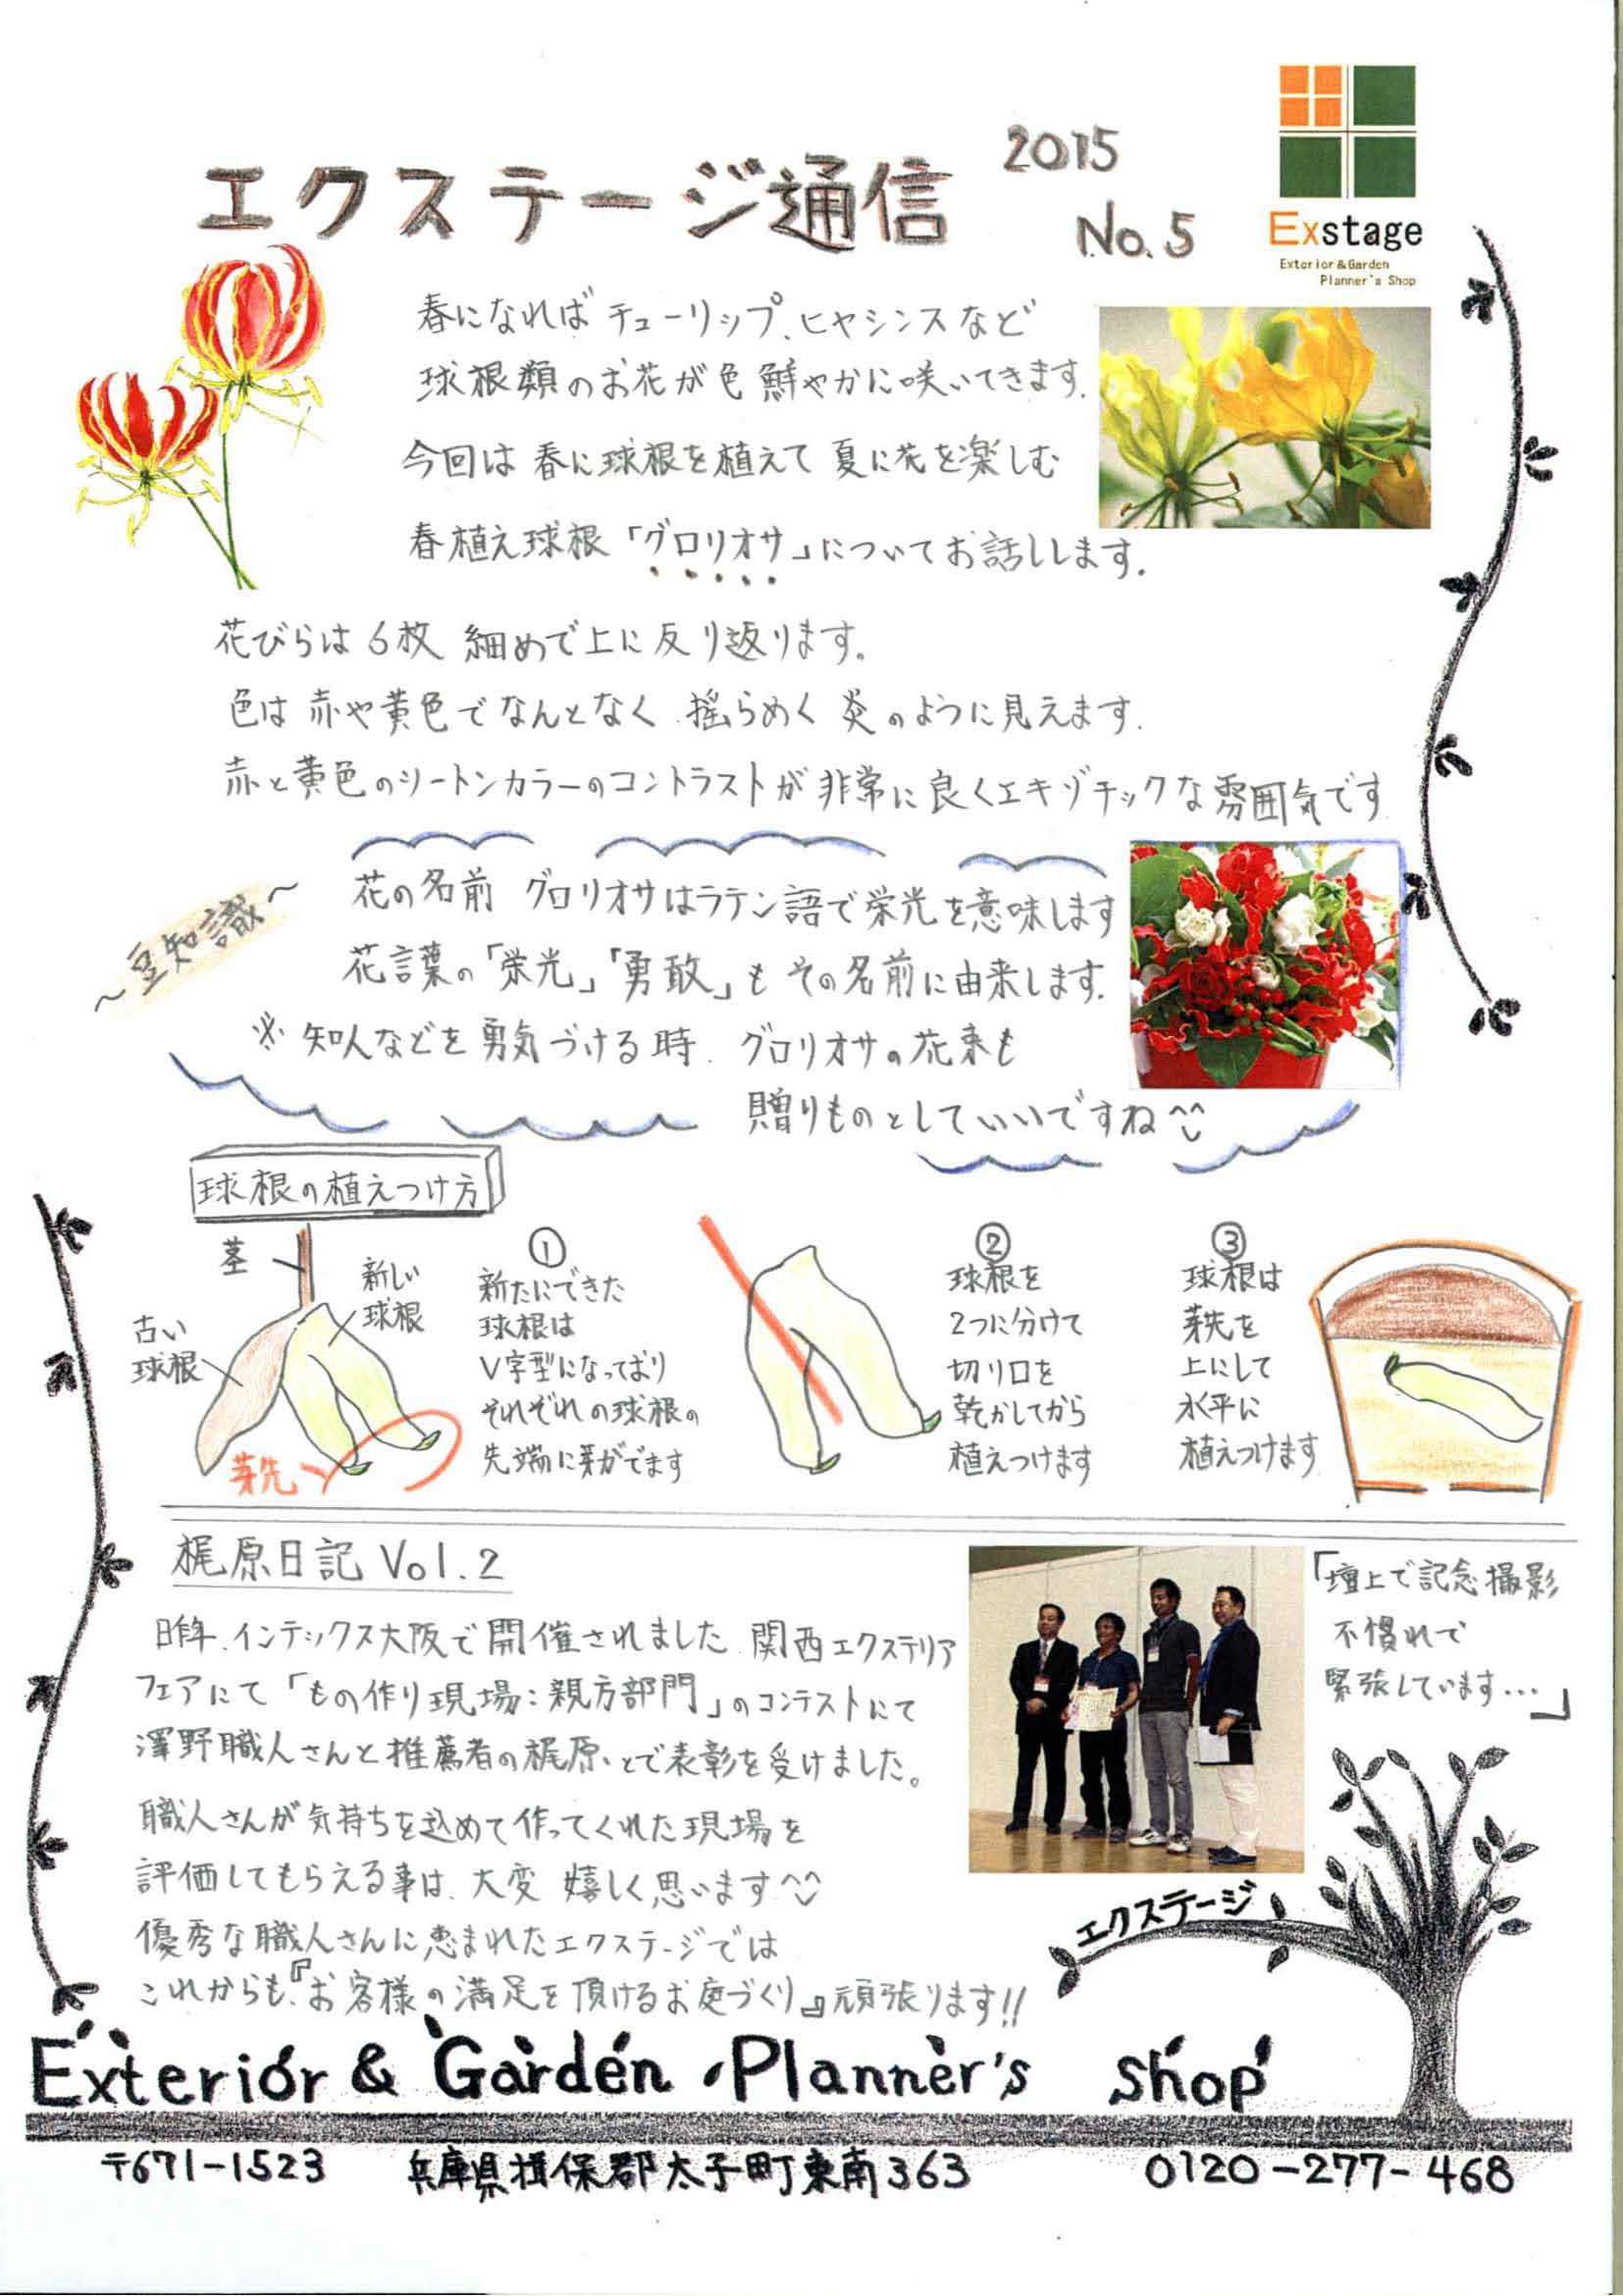 エクステージ通信
2015
No.5
Exstage
Exterior&Garden
Planner's Shop
春になれば チューリップ、ヒヤシンスなど
球根類のお花が色鮮やかに咲いてきます.
今回は 春に球根を植えて 夏に花を楽しむ
春植え球根「グロリオサ」についてお話しします.
花びらは6枚 細めで上に反り返ります。
色は 赤や黄色でなんとなく 揺らめく 炎のように見えます.
赤と黄色のシートンカラーのコントラストが非常に良くエキゾチックな雰囲気です
~豆知識~
花の名前 グロリオサはラテン語で栄光を意味します
花言葉の「栄光」「勇敢」も その名前に由来します.
※ 知人などを勇気づける時. グロリオサの花束も
贈りものとしていいですね^^
球根の植えつけ方
茎
新しい
球根
古い
球根
芽先
①
新たにできた
球根は
V字型になっており
それぞれの球根の
先端に芽がでます
②
球根を
2つに分けて
切り口を
乾かしてから
植えつけます
③
球根は
芽先を
上にして
水平に
植えつけます
梶原日記 Vol.2
昨年、インテックス大阪で開催されました 関西エクステリア
フェアにて「もの作り現場:親方部門」のコンテストにて
澤野職人さんと推薦者の梶原とで表彰を受けました。
職人さんが気持ちを込めて作ってくれた現場を
評価してもらえる事は、大変 嬉しく思います^^
優秀な職人さんに恵まれたエクステージでは
これからも、『お客様の満足を頂けるお庭づくり』頑張ります!!
「壇上で記念撮影
不慣れで
緊張しています…」
エクステージ
Exterior & Garden Planner's Shop
〒671-1523 兵庫県揖保郡太子町東南363 0120-277-468